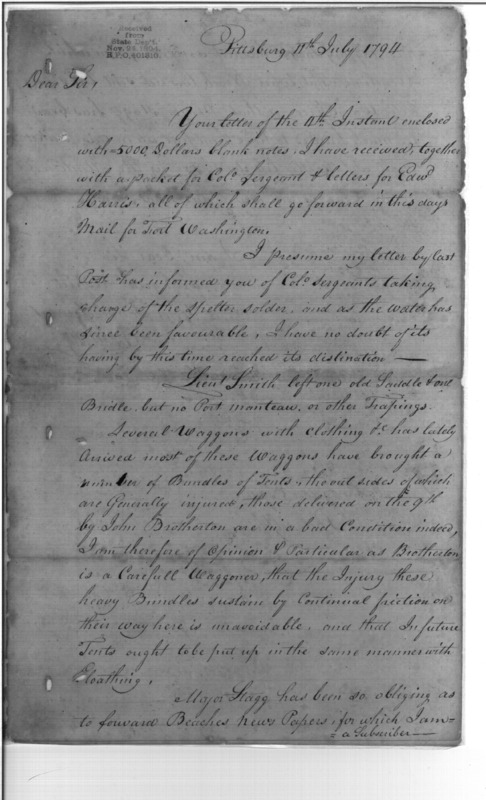 Received
from
State Dept.
Nov. 23, 1894.
R.P.O. 401810.
Pittsburg 11th July 1794
Dear Sir,
Your letter of the 4th Instant enclosed
with 5000 Dollars blank notes, I have received, together
with a packet for Colo. Sergeant & letters for Edwd
Harris, all of which shall go forward in this days
Mail for Fort Washington.
I presume my letter by last
Post has informed you of Colo. Sergeants taking
charge of the spelter solder, and as the water has
since been favourable, I have no doubt of its
having by this time reached its distination —
Lieut Smith left one old Saddle & one
Bridle, but no Port manteau, or other Trapings.
Several Waggons with Clothing &c has lately
Arrived most of these Waggons have brought a
number of Bundles of Tents, the out sides of which
are Generally injured, those delivered on the 9th
by John Brotherton are in a bad Condition indeed,
I am therefore of Opinion & Particular as Brotherton
is a Carefull Waggoner, that the Injury these
heavy Bundles sustain by Continual friction on
their way here is unavoidable, and that In future
Tents ought to be put up in the same manner with
Cloathing.
Major Stagg has been so obliging as
to forward Beaches News Papers, for which I am
a Subscriber —